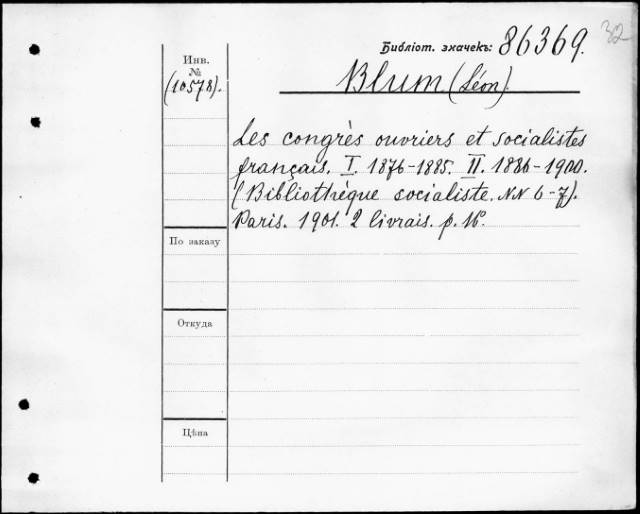 32
Библіот. значекъ: 86369.
Инв.
№
(10578).
Blum (Léon).
Les congrès ouvriers et socialistes
français. I. 1876-1885. II. 1886-1900.
(Bibliothèque socialiste. NN 6-7).
Paris. 1901. 2 livrais. p. 16°.
По заказу
Откуда
Цѣна